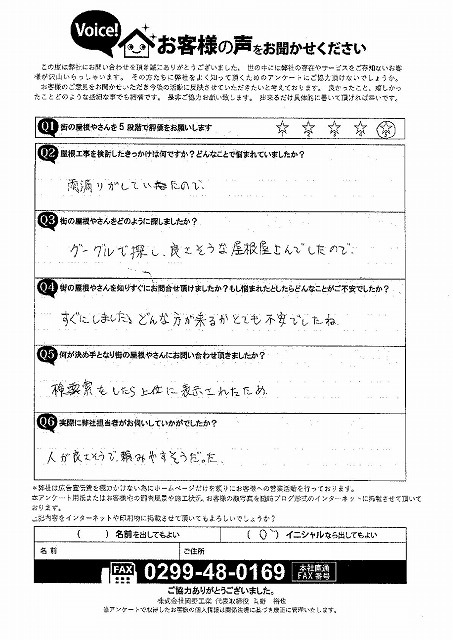 Voice!
お客様の声をお聞かせください
この度は弊社にお問い合わせを頂き誠にありがとうございました。世の中には弊社の存在やサービスをご存知ないお客
様が沢山いらっしゃいます。その方たちに弊社をよく知って頂くためのアンケートにご協力頂けないでしょうか。
お客様のご意見をお聞かせいただき今後の活動に反映させていただきたいと考えております。良かったこと、嬉しかっ
たことどのような些細な事でも結構です。是非ご協力お願い致します。出来るだけ具体的に書いて頂ければ幸いです。
Q1 街の屋根やさんを5段階で評価をお願いします
Q2 屋根工事を検討したきっかけは何ですか？どんなことで悩まれていましたか？
雨漏りがしていたので、
Q3 街の屋根やさんをどのように探しましたか？
グーグルで探し、良さそうな屋根屋さんでしたので、
Q4 街の屋根やさんを知りすぐにお問合せ頂けましたか？もし悩まれたとしたらどんなことがご不安でしたか？
すぐにしました。どんな方が来るかとても不安でしたね。
Q5 何が決め手となり街の屋根やさんにお問い合わせ頂きましたか？
検索をしたら上位に表示されたため
Q6 実際に弊社担当者がお伺いしていかがでしたか？
人が良さそうで、頼みやすそうだった。
＊弊社は広告宣伝費を極力かけない為にホームページだけを頼りにお客様への営業活動を行っております。
本アンケート用紙またはお客様宅の調査風景や施工状況、お客様の顔写真を随時ブログ形式のインターネットに掲載させて頂いて
おります。
上記内容をインターネットや印刷物に掲載させて頂いてもよろしいでしょうか？
（　　）名前を出してもよい （ ○ ）イニシャルなら出してもよい
名前 ご住所
FAX 0299-48-0169 本社直通FAX番号
ご協力ありがとうございました。
代表取締役
※アンケートで取得したお客様の個人情報は関係法規に基づき厳正に管理いたします。